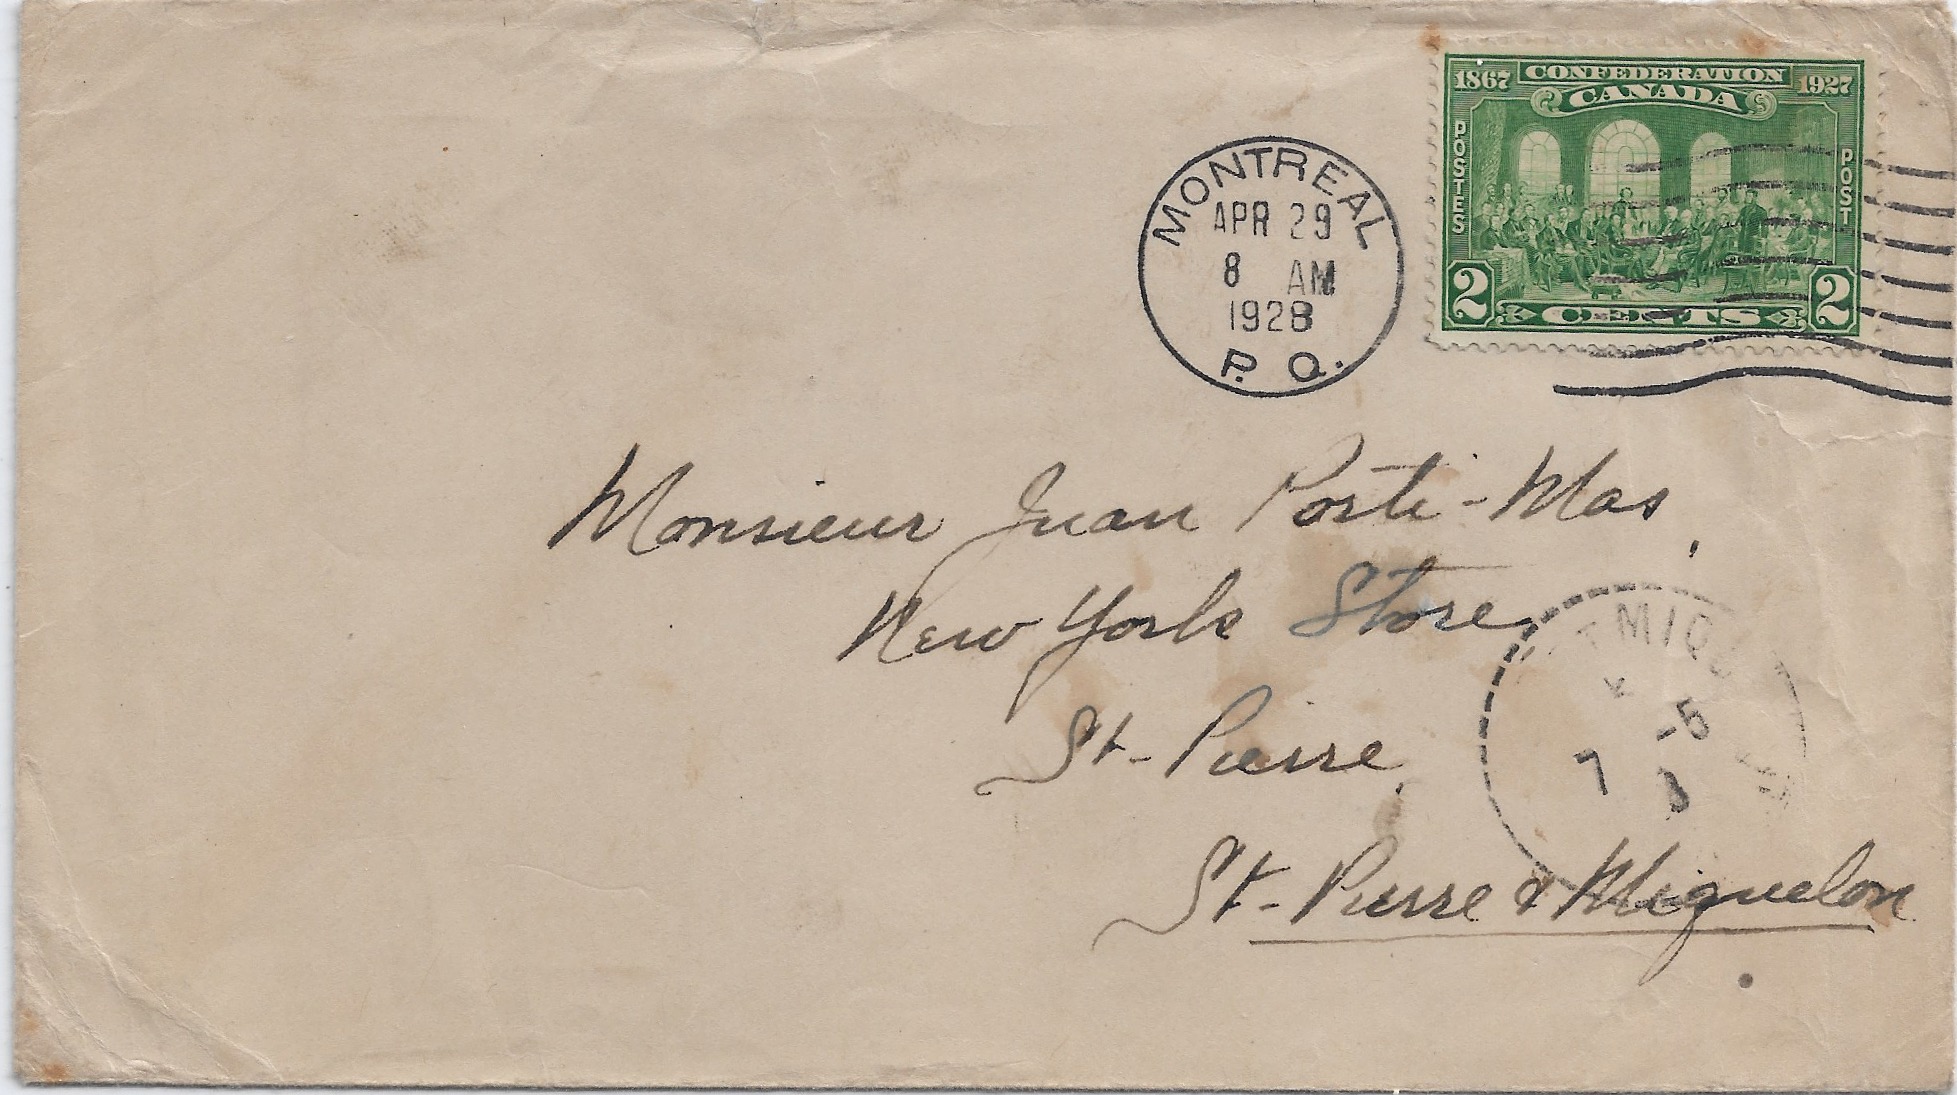 1867 CONFEDERATION 1927
CANADA
POSTES
POST
2 CENTS 2
MONTREAL
APR 29
8 AM
1928
P. Q.
Monsieur Juan Porti-Mas,
New York Store,
St-Pierre,
St-Pierre & Miquelon
T MIQU
7 -5